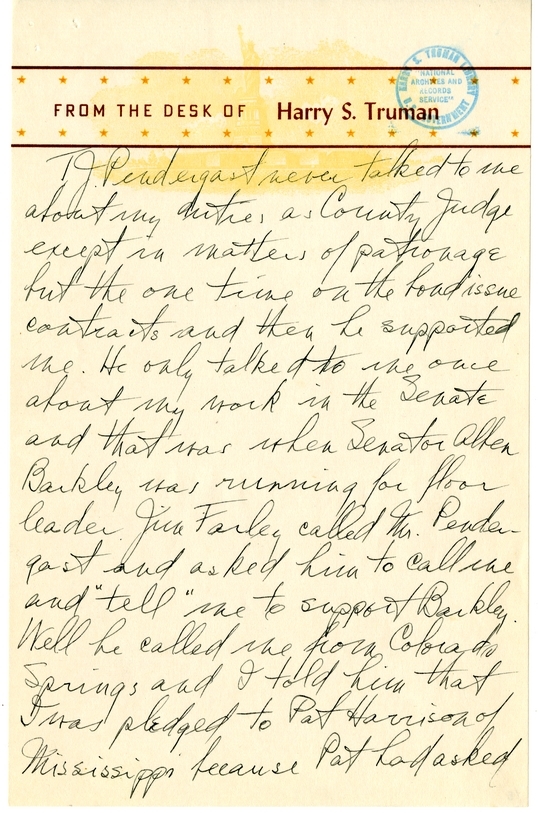 HARRY S. TRUMAN LIBRARY
"NATIONAL
ARCHIVES AND
RECORDS
SERVICE"
U.S. GOVERNMENT
FROM THE DESK OF Harry S. Truman
T.J. Pendergast never talked to me
about my duties as County Judge
except in matters of patronage
but the one time on the bond issue
contracts and then he supported
me. He only talked to me once
about my work in the Senate
and that was when Senator Alben
Barkley was running for floor
leader. Jim Farley called Mr. Pender-
gast and asked him to call me
and "tell" me to support Barkley.
Well he called me from Colorado
Springs and I told him that
I was pledged to Pat Harrison of
Mississippi because Pat had asked